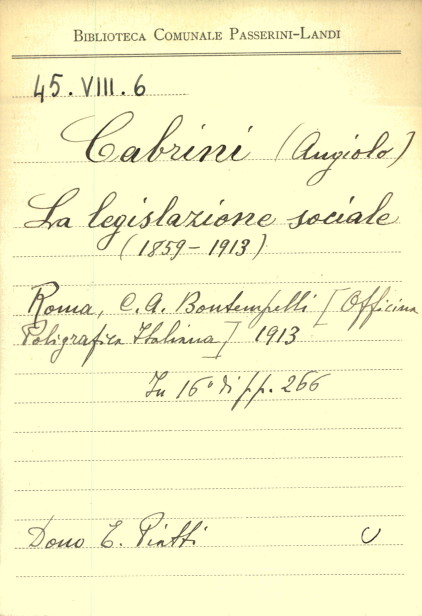 BIBLIOTECA COMUNALE PASSERINI-LANDI
45.VIII.6
Cabrini (Angiolo)
La legislazione sociale
(1859-1913)
Roma, C. A. Bontempelli [Officina
Poligrafica Italiana] 1913
In 16° di pp. 266
Dono E. Piatti U